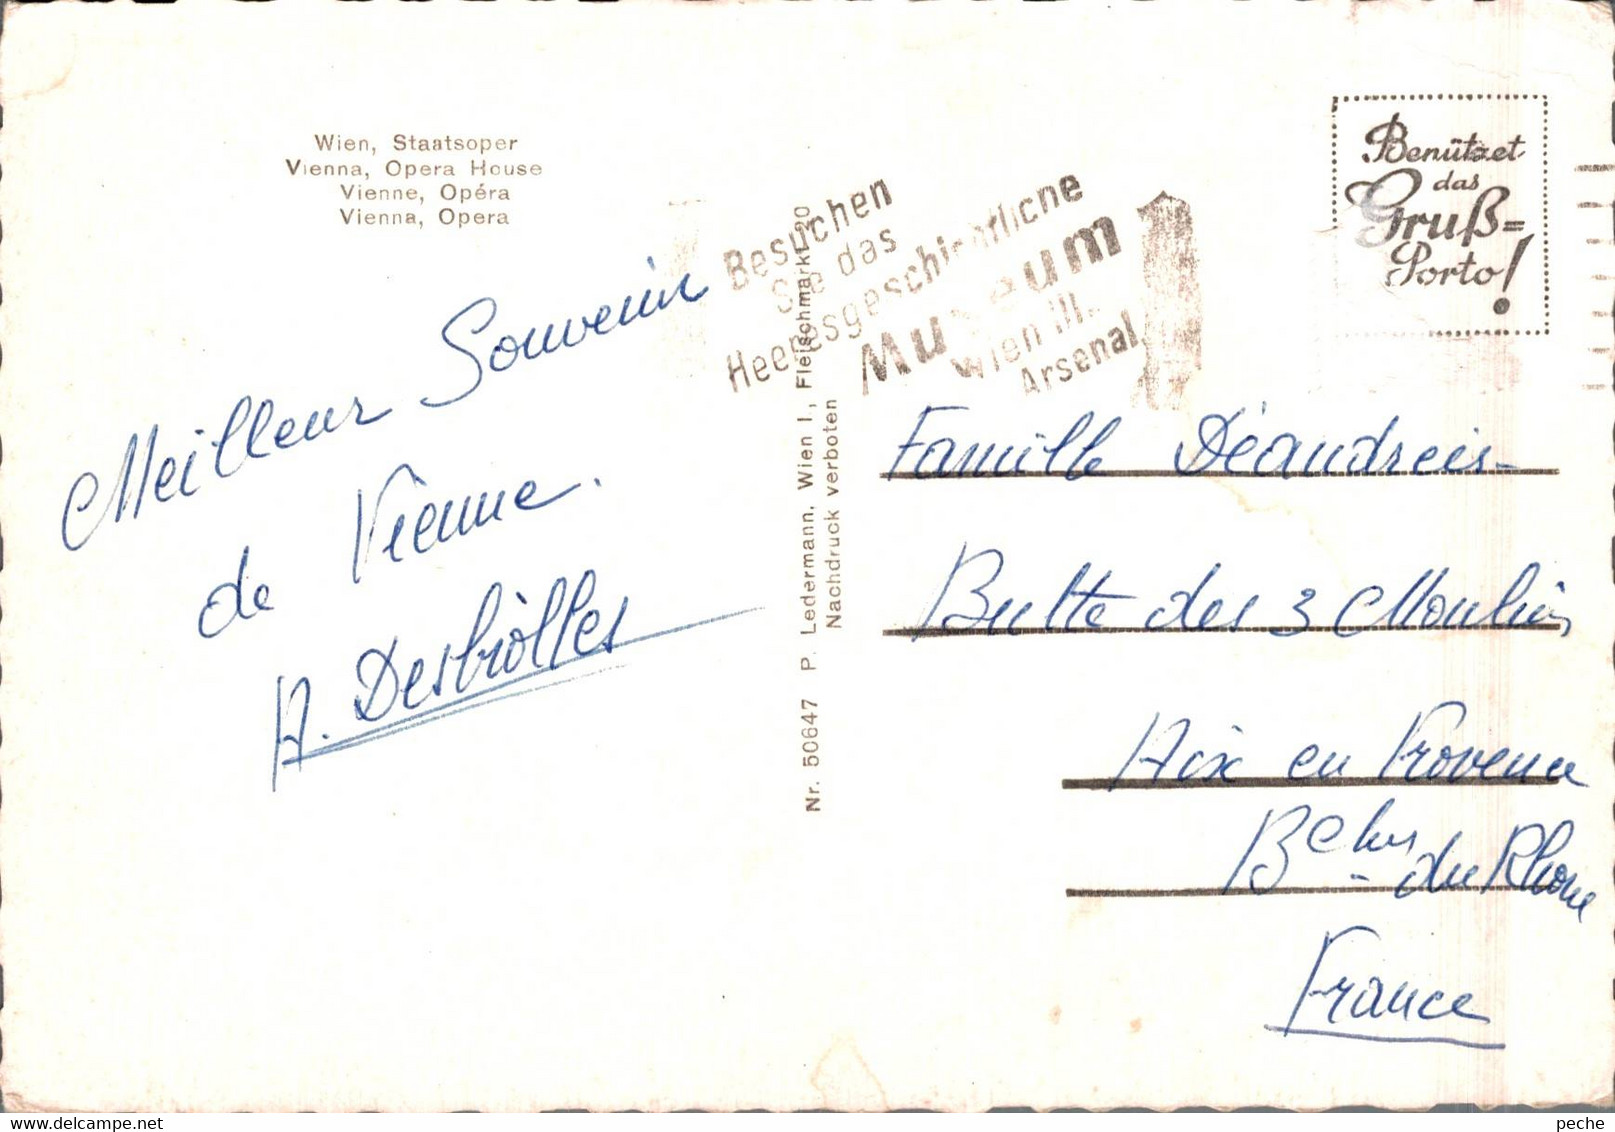 Wien, Staatsoper
Vienna, Opera House
Vienne, Opéra
Vienna, Opera
Meilleur Souvenir
de Vienne.
A. Desbiolles
Nr. 50647 P. Ledermann, Wien I., Fleischmarkt 20
Nachdruck verboten
Besuchen
Sie das
Heeresgeschichtliche
Museum
Wien III.
Arsenal
Benützet
das
Gruß=
Porto!
Famille Déandreis
Butte des 3 Moulins
Aix en Provence
Bches du Rhone
France
peche